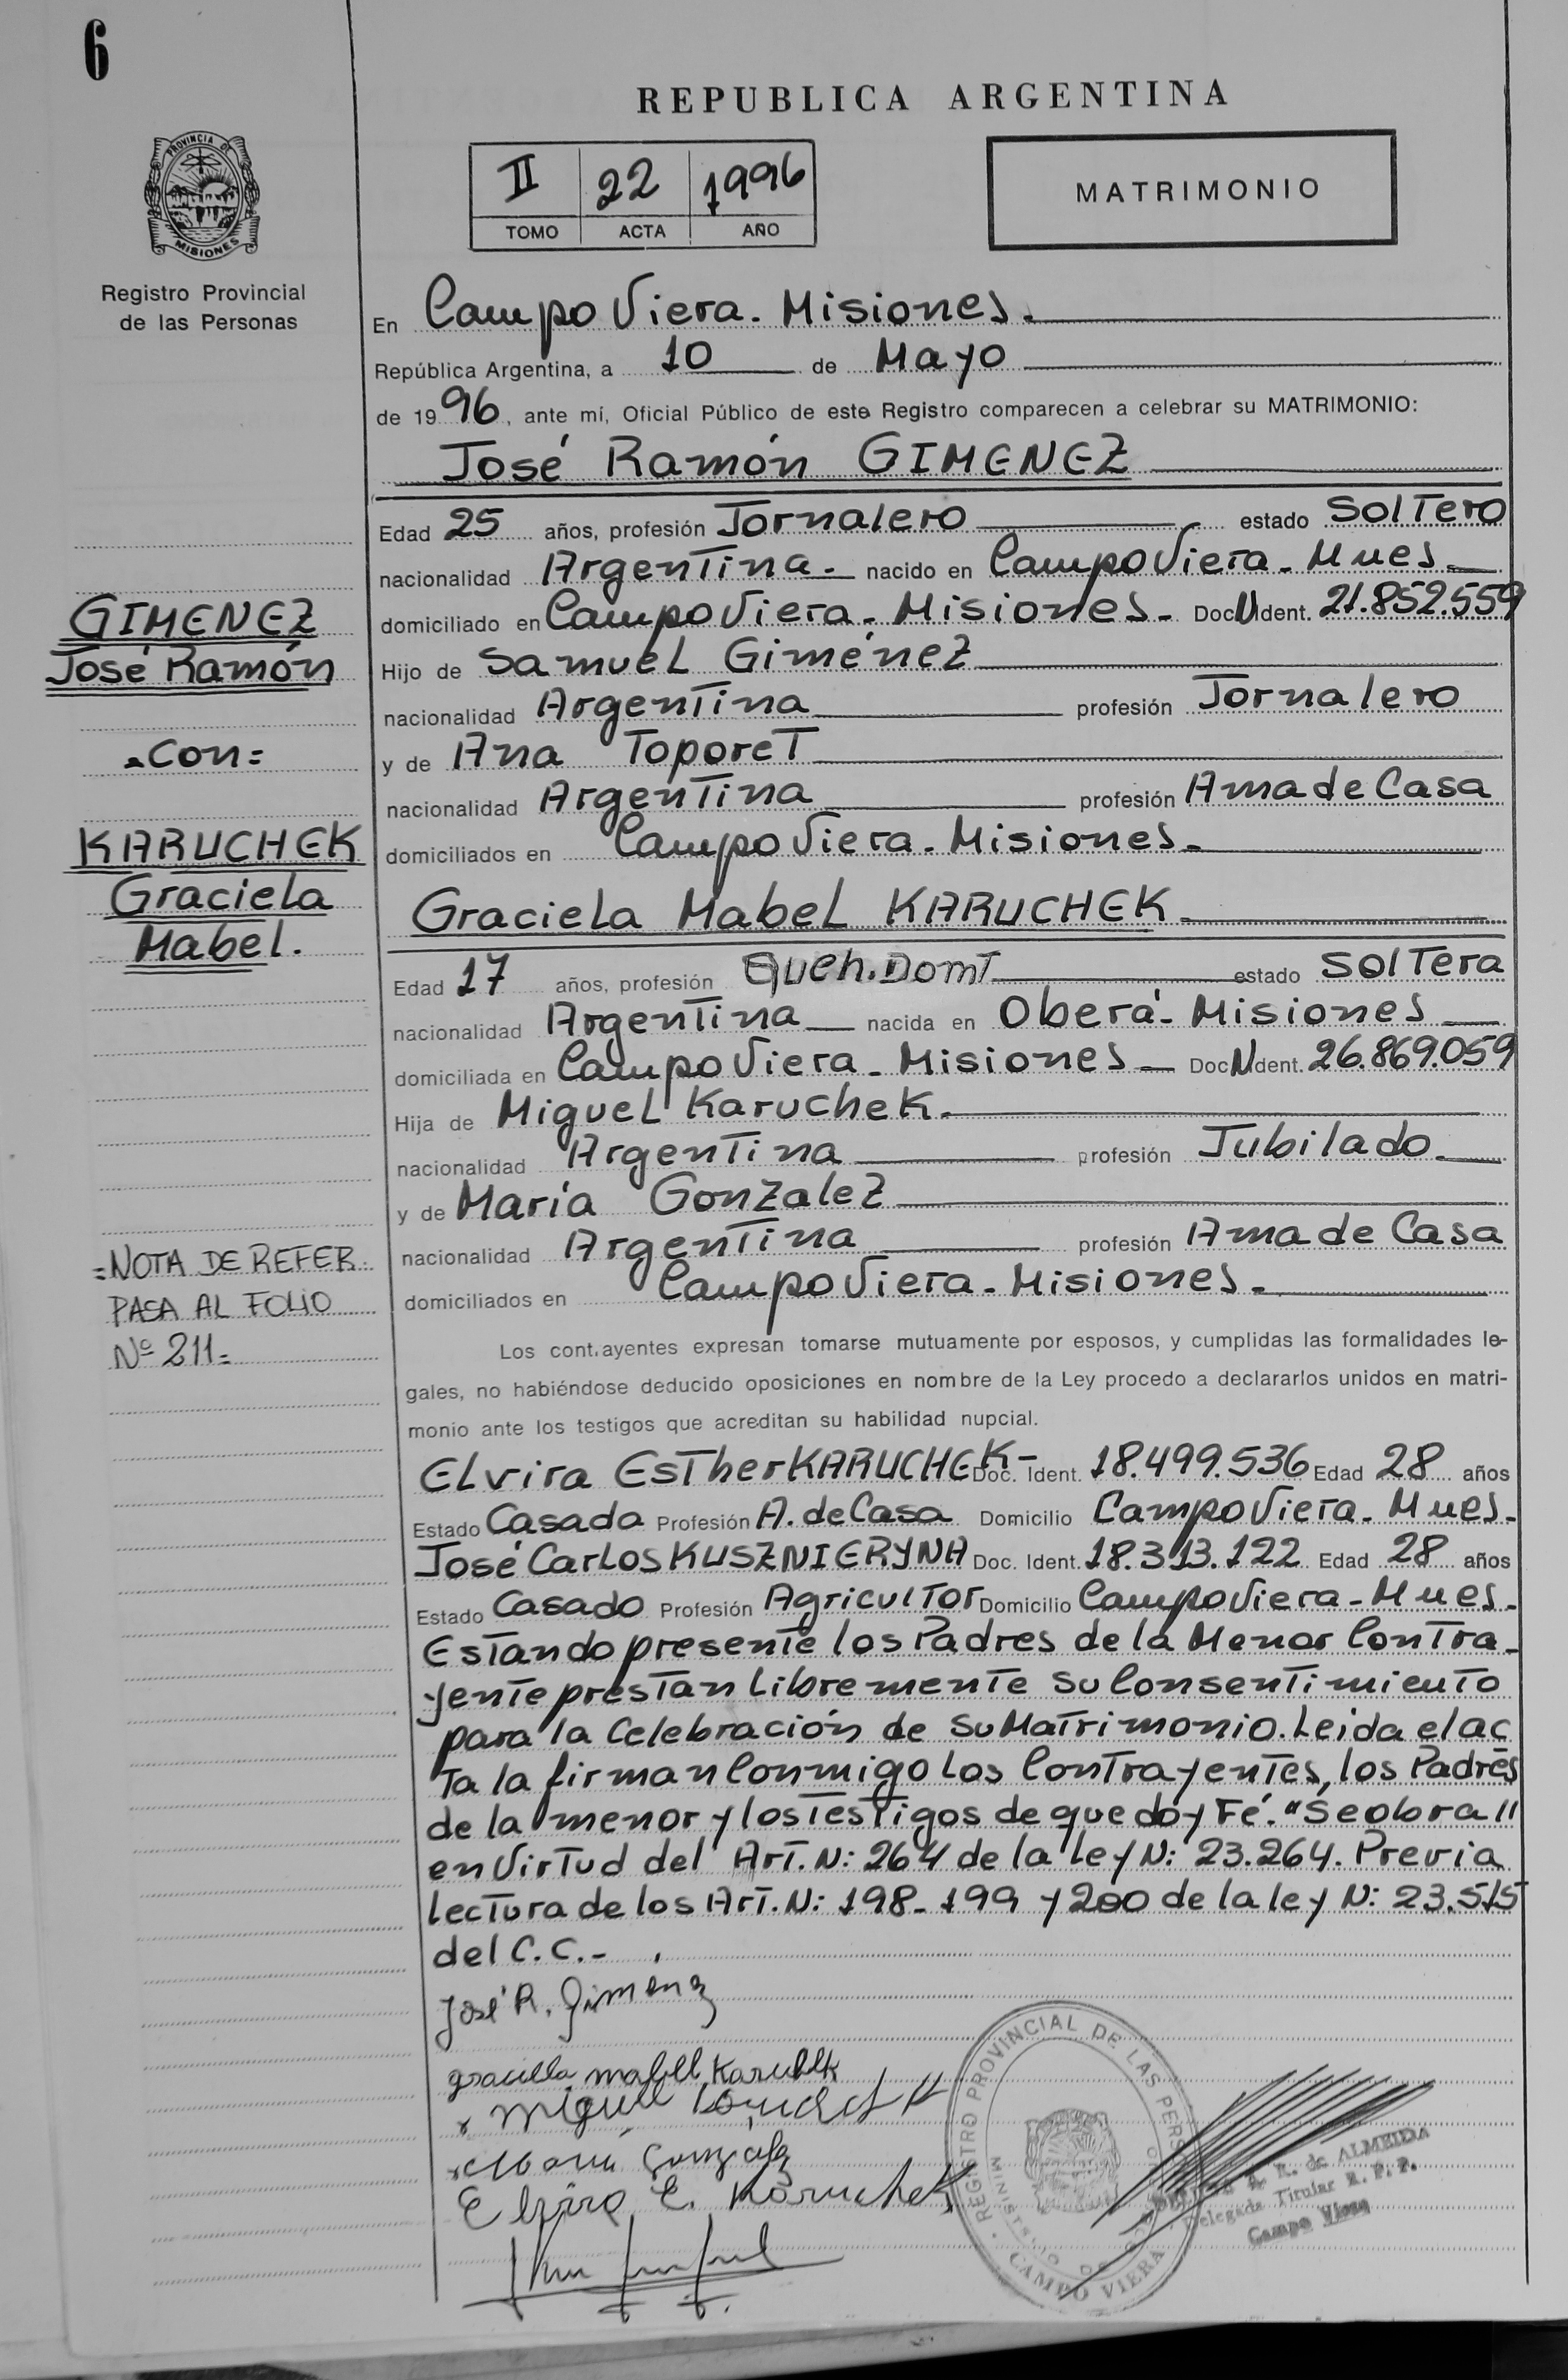 6
REPUBLICA ARGENTINA
II 22 1996
TOMO ACTA AÑO
MATRIMONIO
PROVINCIA DE MISIONES
Registro Provincial
de las Personas
En Campo Viera - Misiones.
República Argentina, a 10 de Mayo
de 1996, ante mí, Oficial Público de este Registro comparecen a celebrar su MATRIMONIO:
José Ramón GIMENEZ
Edad 25 años, profesión Jornalero estado Soltero
nacionalidad Argentina.- nacido en Campo Viera - Mnes.
domiciliado en Campo Viera - Misiones - Doc N Ident. 21.852.559
Hijo de Samuel Giménez
nacionalidad Argentina profesión Jornalero
y de Ana Toporet
nacionalidad Argentina profesión Ama de Casa
domiciliados en Campo Viera - Misiones.-
Graciela Mabel KARUCHEK.-
Edad 17 años, profesión Queh. Domt estado Soltera
nacionalidad Argentina nacida en Oberá - Misiones
domiciliada en Campo Viera - Misiones - Doc N Ident. 26.869.059
Hija de Miguel Karuchek.-
nacionalidad Argentina profesión Jubilado.-
y de María Gonzalez
nacionalidad Argentina profesión Ama de Casa
domiciliados en Campo Viera - Misiones.-
GIMENEZ
José Ramón
=Con=
KARUCHEK
Graciela
Mabel.
=NOTA DE REFER.
PASA AL FOLIO
Nº 211=
Los cont.ayentes expresan tomarse mutuamente por esposos, y cumplidas las formalidades le-
gales, no habiéndose deducido oposiciones en nombre de la Ley procedo a declararlos unidos en matri-
monio ante los testigos que acreditan su habilidad nupcial.
Elvira Esther KARUCHEK - Doc. Ident. 18.499.536 Edad 28 años
Estado Casada Profesión A. de Casa Domicilio Campo Viera - Mnes.-
José Carlos KUSZNIERYNA Doc. Ident. 18.313.122 Edad 28 años
Estado Casado Profesión Agricultor Domicilio Campo Viera - Mnes.-
Estando presente los Padres de la Menor Contra-
yente prestan libremente su Consentimiento
para la Celebración de su Matrimonio. Leida el ac
ta la firman Conmigo los Contrayentes, los Padres
de la menor y los Testigos de que doy Fé. "Se obra"
en Virtud del Art. N: 264 de la ley N: 23.264. Previa
lectura de los Art. N: 198 - 199 y 200 de la ley N: 23.515
del C.C.-
José R. Gimenez
Graciela Mabel Karuchek
x Miguel Karuchek
x Maria Gonzalez
Elvira E. Karuchek
REGISTRO PROVINCIAL DE LAS PERSONAS
MINISTERIO DE
CAMPO VIERA
R. de ALMEIDA
Delegada Titular R. P. P.
Campo Viera